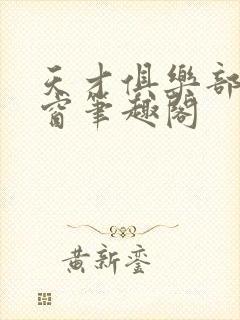 天才俱樂部
窗筆趣閣
黃新鑾